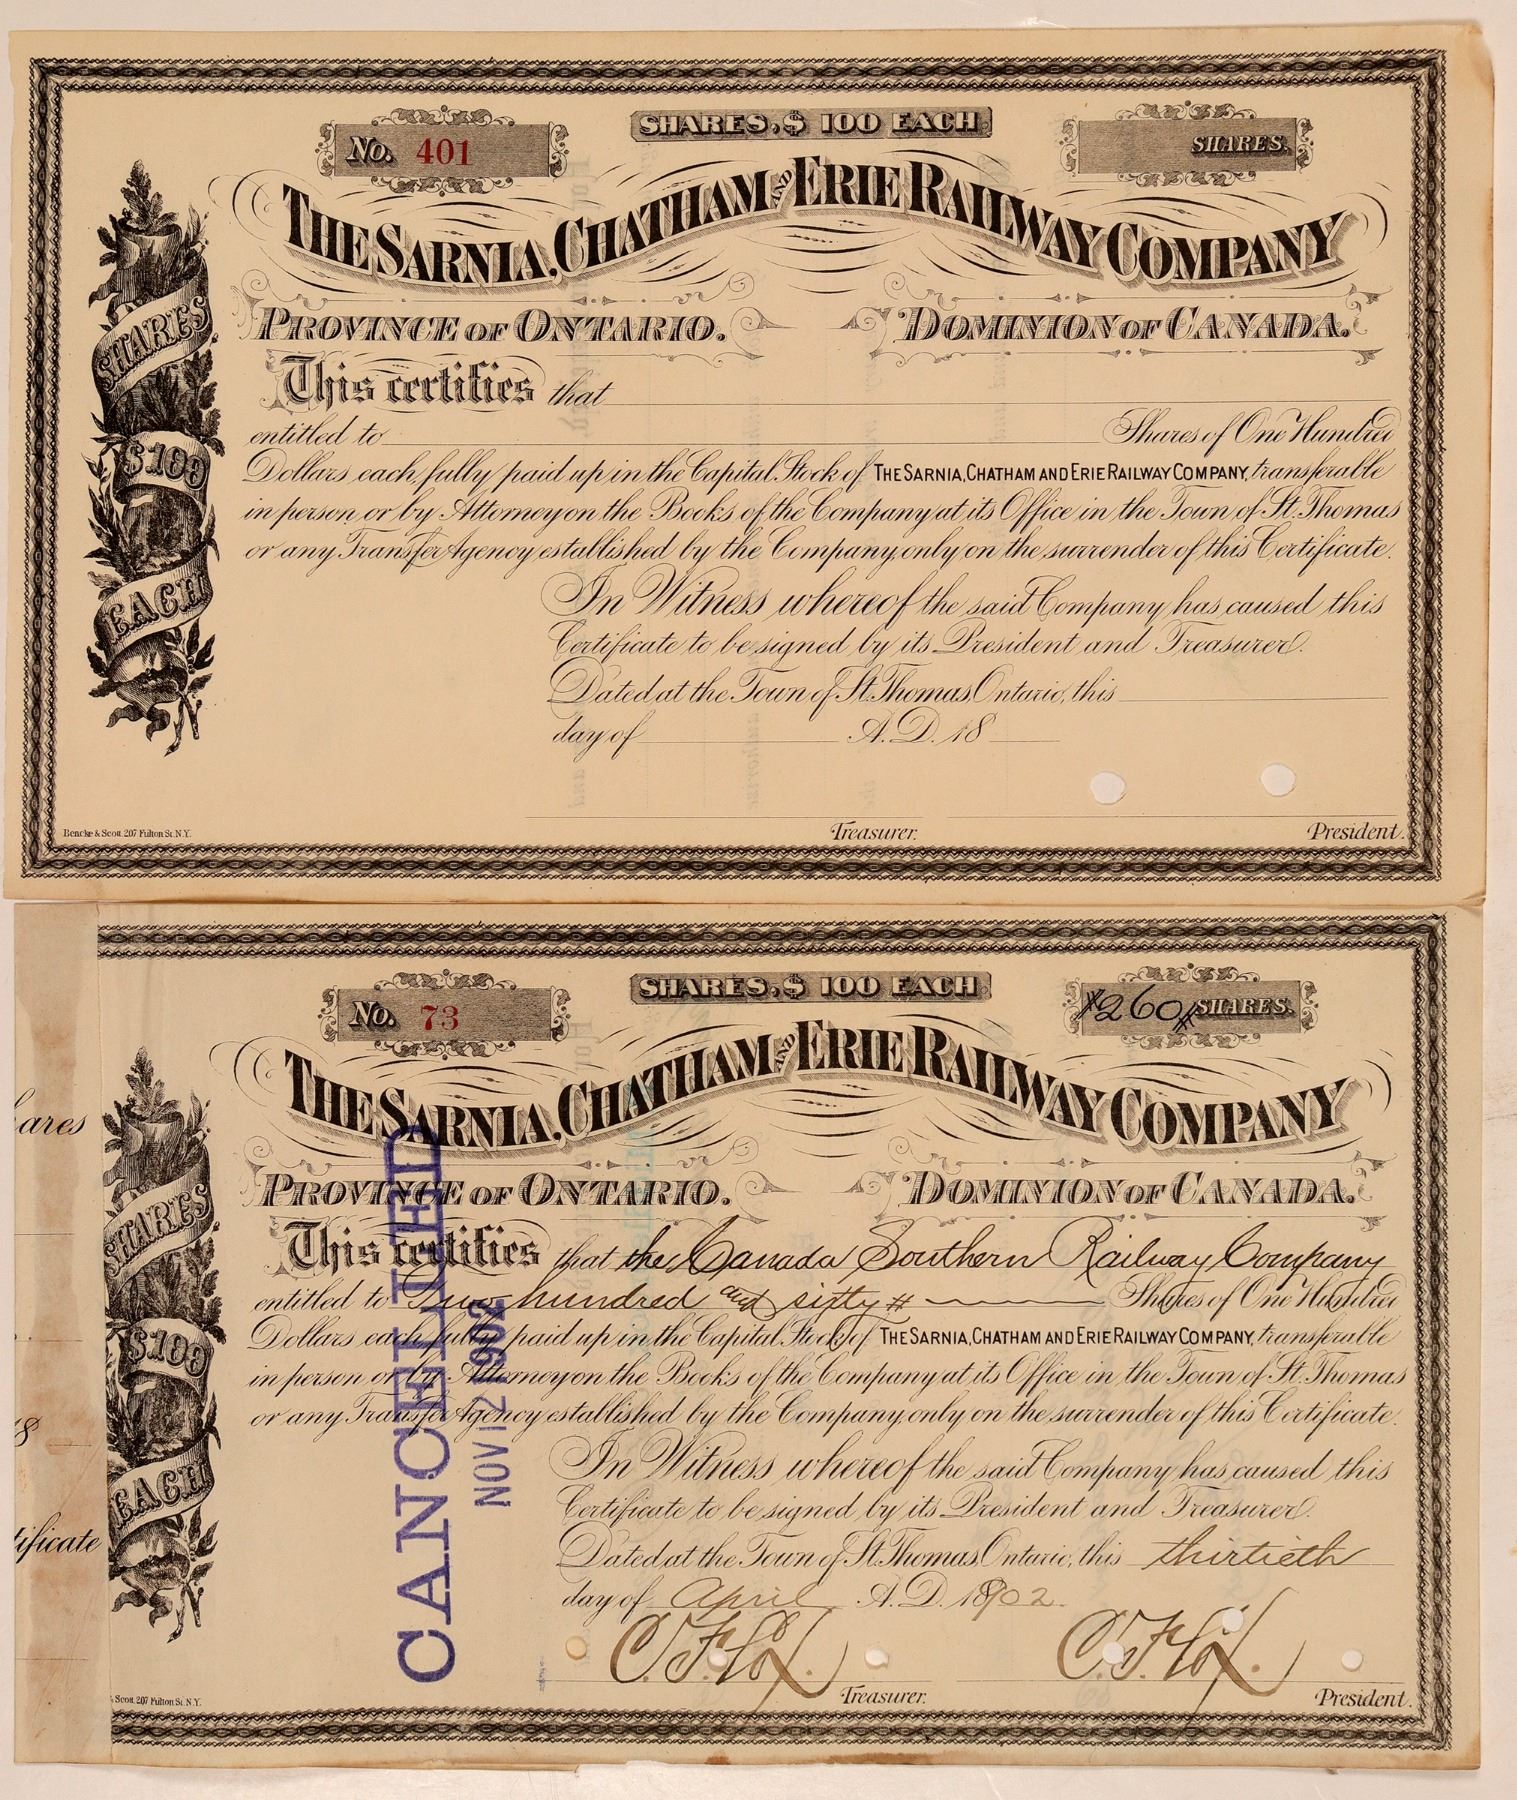 No. 401
SHARES, $ 100 EACH
SHARES.
THE SARNIA, CHATHAM AND ERIE RAILWAY COMPANY
PROVINCE OF ONTARIO.
DOMINION OF CANADA.
SHARES
$100
EACH
This certifies that
entitled to Shares of One Hundred
Dollars each, fully paid up in the Capital Stock of THE SARNIA, CHATHAM AND ERIE RAILWAY COMPANY, transferable
in person or by Attorney on the Books of the Company at its Office in the Town of St. Thomas
or any Transfer Agency established by the Company, only on the surrender of this Certificate.
In Witness whereof the said Company has caused this
Certificate to be signed by its President and Treasurer.
Dated at the Town of St. Thomas, Ontario, this
day of A.D. 18
Bencke & Scott, 207 Fulton St. N.Y.
Treasurer.
President.
No. 73
SHARES, $ 100 EACH
260 SHARES.
THE SARNIA, CHATHAM AND ERIE RAILWAY COMPANY
PROVINCE OF ONTARIO.
DOMINION OF CANADA.
ares
SHARES
$100
EACH
8
tificate
This certifies that the Canada Southern Railway Company
entitled to Two hundred and sixty Shares of One Hundred
Dollars each, fully paid up in the Capital Stock of THE SARNIA, CHATHAM AND ERIE RAILWAY COMPANY, transferable
in person or by Attorney on the Books of the Company at its Office in the Town of St. Thomas
or any Transfer Agency established by the Company, only on the surrender of this Certificate.
In Witness whereof the said Company has caused this
Certificate to be signed by its President and Treasurer.
Dated at the Town of St. Thomas, Ontario, this thirtieth
day of April A.D. 1902
CANCELLED
NOV 12 1908
C. F. Cox.
C. F. Cox.
Scott, 207 Fulton St. N.Y.
Treasurer.
President.